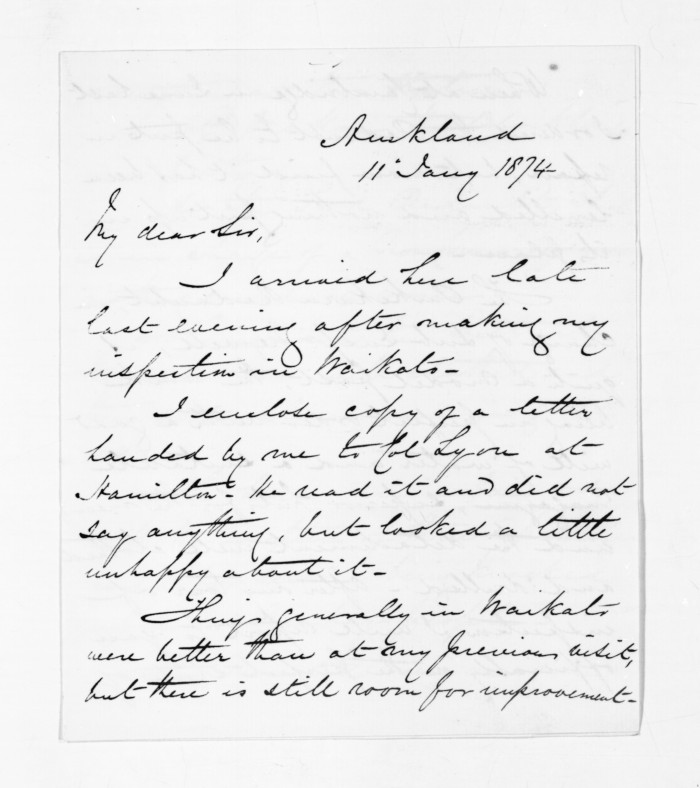 Auckland
11 Jany 1874
My dear Sir,
I arrived here late
last evening after making my
inspection in Waikato -
I enclose copy of a letter
handed by me to Col Lyon at
Hamilton - He read it and did not
say anything, but looked a little
unhappy about it -
Things generally in Waikato
were better than at my previous visit,
but there is still room for improvement -